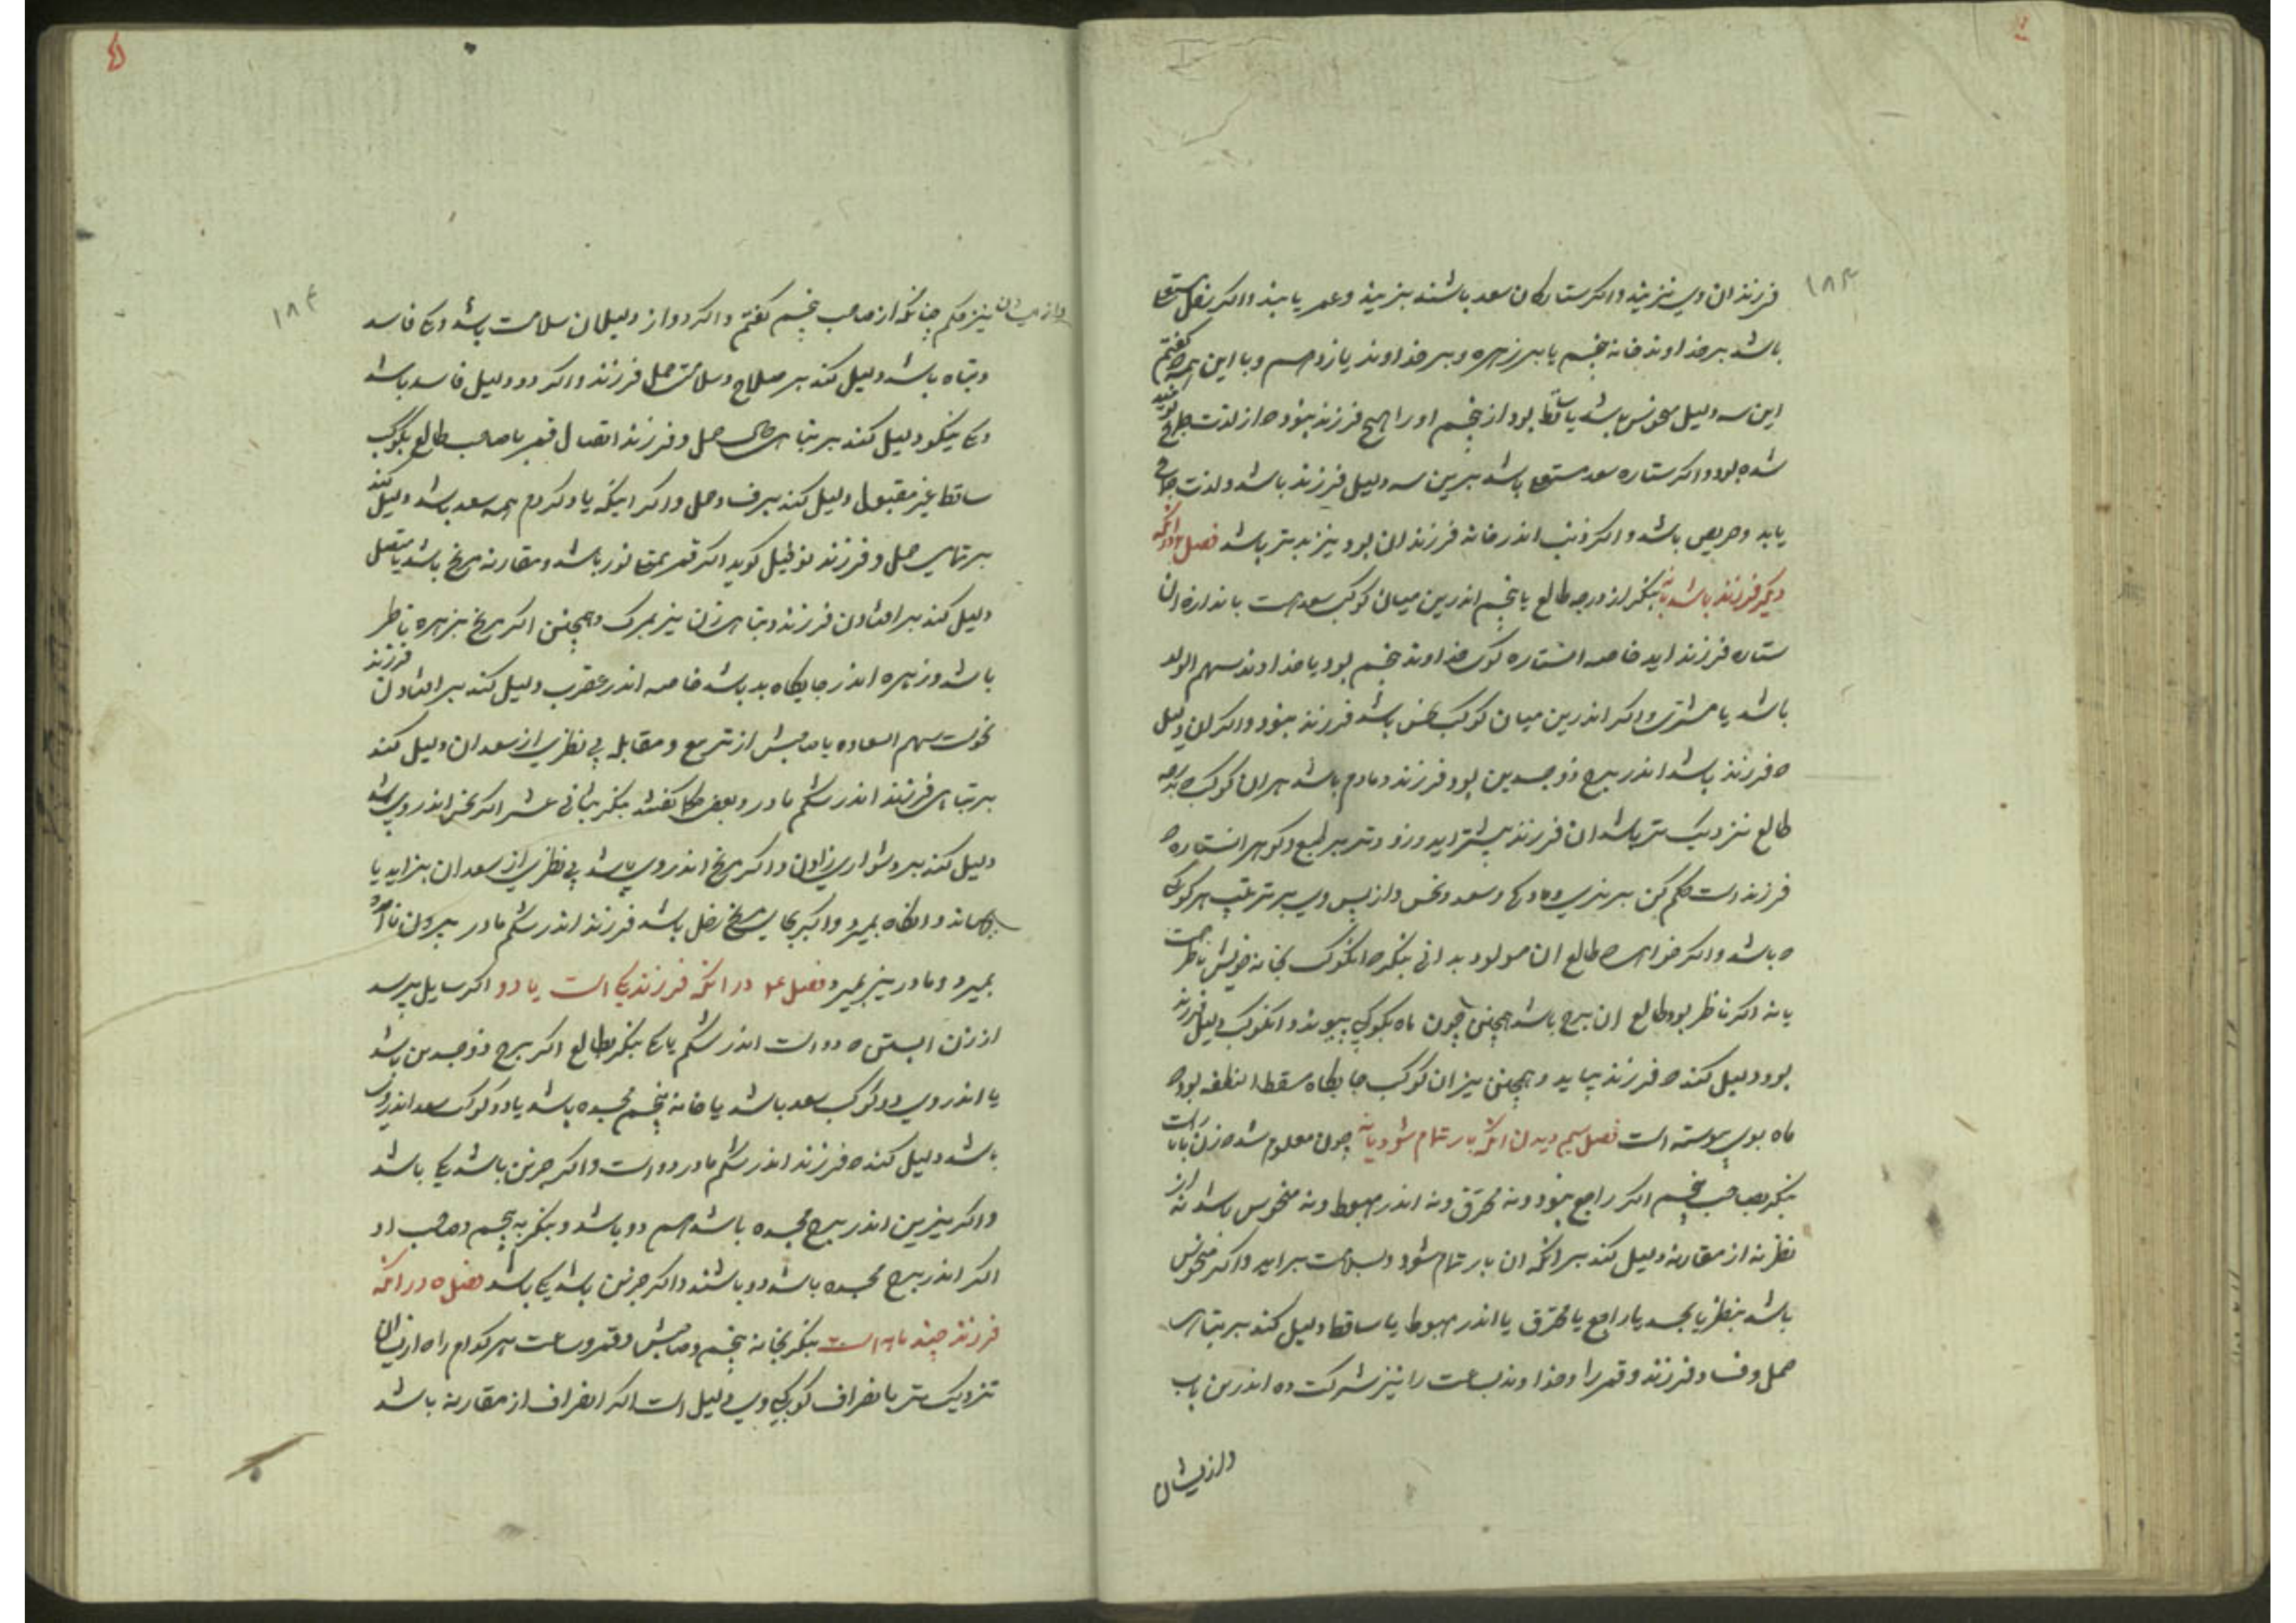 ۱۸۳
فرزندان وی نزیند و اگر ستارگان سعد باشند بزیند و عمر یابند و اگر زحل مستعلی
باشد بر خداوند خانه پنجم یا بر زهره و بر خداوند یازدهم و با این همه که گفتم
این سه دلیل منحوس باشد یا ساقط بود از پنجم او را هیچ فرزند نبود و از لذت جماع نومید
شده بود و اگر ستاره سعد مستعلی باشد برین سه دلیل فرزند باشد و لذت جماع
یابد و حریص باشد و اگر ذنب اندر خانه فرزندان بود نیز بدتر باشد فصل ۲ در آنکه
دیگر فرزند باشد یا نه بنگر از درجه طالع یا پنجم اندرین میان کوکب سعد هست باندازه آن
ستاره فرزند آید خاصه آن ستاره کوکب خداوند پنجم بود یا خداوند سهم الولد
باشد یا مشتری و اگر اندرین میان کوکب نحس باشد فرزند نبود و اگر آن دلیل
که فرزند باشد اندر برج ذوجسدین بود فرزند دمادم باشد هر آن کوکب که بدرجه
طالع نزدیکتر باشد آن فرزند پیشتر آید و زودتر بر طبع و گوهر آن ستاره که
فرزند است حکم کن بر نری و مادگی و سعد و نحس و از پس وی بر ترتیب هر کوکبی
که باشد و اگر خواهی که طالع آن مولود بدانی بنگر که آن کوکب بخانه خویش ناظر است
یا نه اگر ناظر بود طالع آن برج باشد همچنین چون ماه بکوکبی پیوندد و آن کوکب دلیل فرزند
بود دلیل کند که فرزند بیاید و همچنین نیز آن کوکب جایگاه مسقط النطفه بود که
ماه بوی پیوسته است فصل سیم دیدن آنکه بار تمام شود یا نه چون معلوم شد که زن با بار است
بنگر بصاحب پنجم اگر راجع نبود و نه محترق و نه اندر هبوط و نه منحوس باشد نه از
نظر نه از مقارنه دلیل کند بر آنکه آن بار تمام شود و بسلامت برآید و اگر منحوس
باشد بنظر یا بجسد یا راجع یا محترق یا اندر هبوط یا ساقط دلیل کند بر تباهی
حمل و فساد فرزند و قمر را و خداوند ساعت را نیز شرکت ده اندرین باب
و از ایشان
۱۸۴
و از ایشان نیز حکم چنانکه از صاحب پنجم گفتم و اگر دو از دلیلان سلامت باشد و یکی فاسد
و تباه باشد دلیل کند بر صلاح و سلامت حمل فرزند و اگر دو دلیل فاسد باشد
و یکی نیکو دلیل کند بر تباهی حال حمل و فرزند اتصال قمر با صاحب طالع بکوکب
ساقط غیر مقبول دلیل کند بر فساد حمل و اگر اینکه یاد کردم همه سعد باشد دلیل کند
بر تمامی حمل و فرزند نوفیل گوید اگر قمر ممتلی نور باشد و مقارنه مریخ باشد یا متصل
دلیل کند بر افتادن فرزند و تباهی زن نیز بمرگ و همچنین اگر مریخ بزهره ناظر
باشد و زهره اندر جایگاه بد باشد خاصه اندر عقرب دلیل کند بر افتادن فرزند
نحوست سهم السعاده یا صاحبش از تربیع و مقابله بی نظری از سعدان دلیل کند
بر تباهی فرزند اندر شکم مادر و بعضی حکما گفتند بنگر بثانی عشر اگر نحس اندر وی باشد
دلیل کند بر دشواری زادن و اگر مریخ اندر وی باشد بی نظری از سعدان بزاید یا
برهاند و آنگاه بمیرد و اگر بجای مریخ زحل باشد فرزند اندر شکم مادر بیرون نا آمده
بمیرد و مادر نیز بمیرد فصل ۴ در آنکه فرزند یکی است یا دو اگر سایل پرسد
از زن آبستن که دو است اندر شکم یا یکی بنگر بطالع اگر برج ذوجسدین باشد
یا اندر وی دو کوکب سعد باشد یا خانه پنجم مجسده باشد یا دو کوکب سعد اندر وی
باشد دلیل کند که فرزند اندر شکم مادر دو است و اگر جز این باشد یکی باشد
و اگر نیرین اندر برج مجسده باشد هم دو باشد و بنگر به پنجم و صاحب او
اگر اندر برج مجسده باشد دو باشند و اگر جز این باشد یکی باشد فصل ۵ در آنکه
فرزند چند ماهه است بنگر بخانه پنجم و صاحبش و قمر و ساعت هر کدام را که از ایشان
نزدیکتر بانصراف کوکبی وی دلیل است اگر انصراف از مقارنه باشد